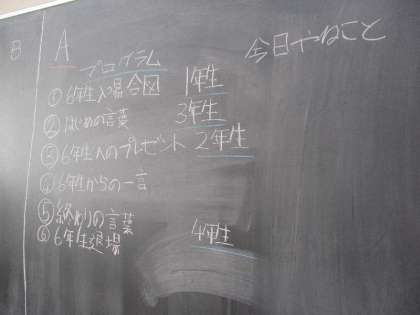 B
A
今日やること
プログラム
① 6年生入場合図 1年生
② はじめの言葉 3年生
③ 6年生へのプレゼント 2年生
④ 6年生からの一言
⑤ 終わりの言葉
⑥ 6年生退場 4年生